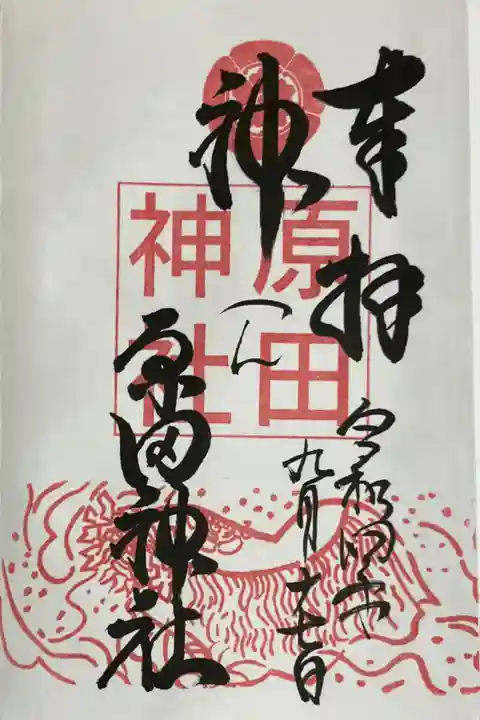 奉拝
令和四年
九月十七日
神
原田
神社
原田神社